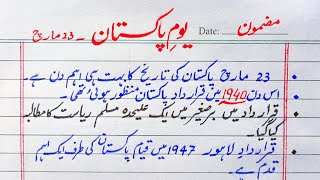 مضمون
یومِ پاکستان ۔ 23 مارچ
Date:
23 مارچ پاکستان کی تاریخ کا بہت ہی اہم دن ہے۔
اس دن 1940 میں قرارداد پاکستان منظور ہوئی تھی۔
قرارداد میں برصغیر میں ایک علیحدہ مسلم ریاست کا مطالبہ
کیا گیا۔
قراردادِ لاہور 1947 میں قیام پاکستان کی طرف ایک اہم
قدم ہے۔